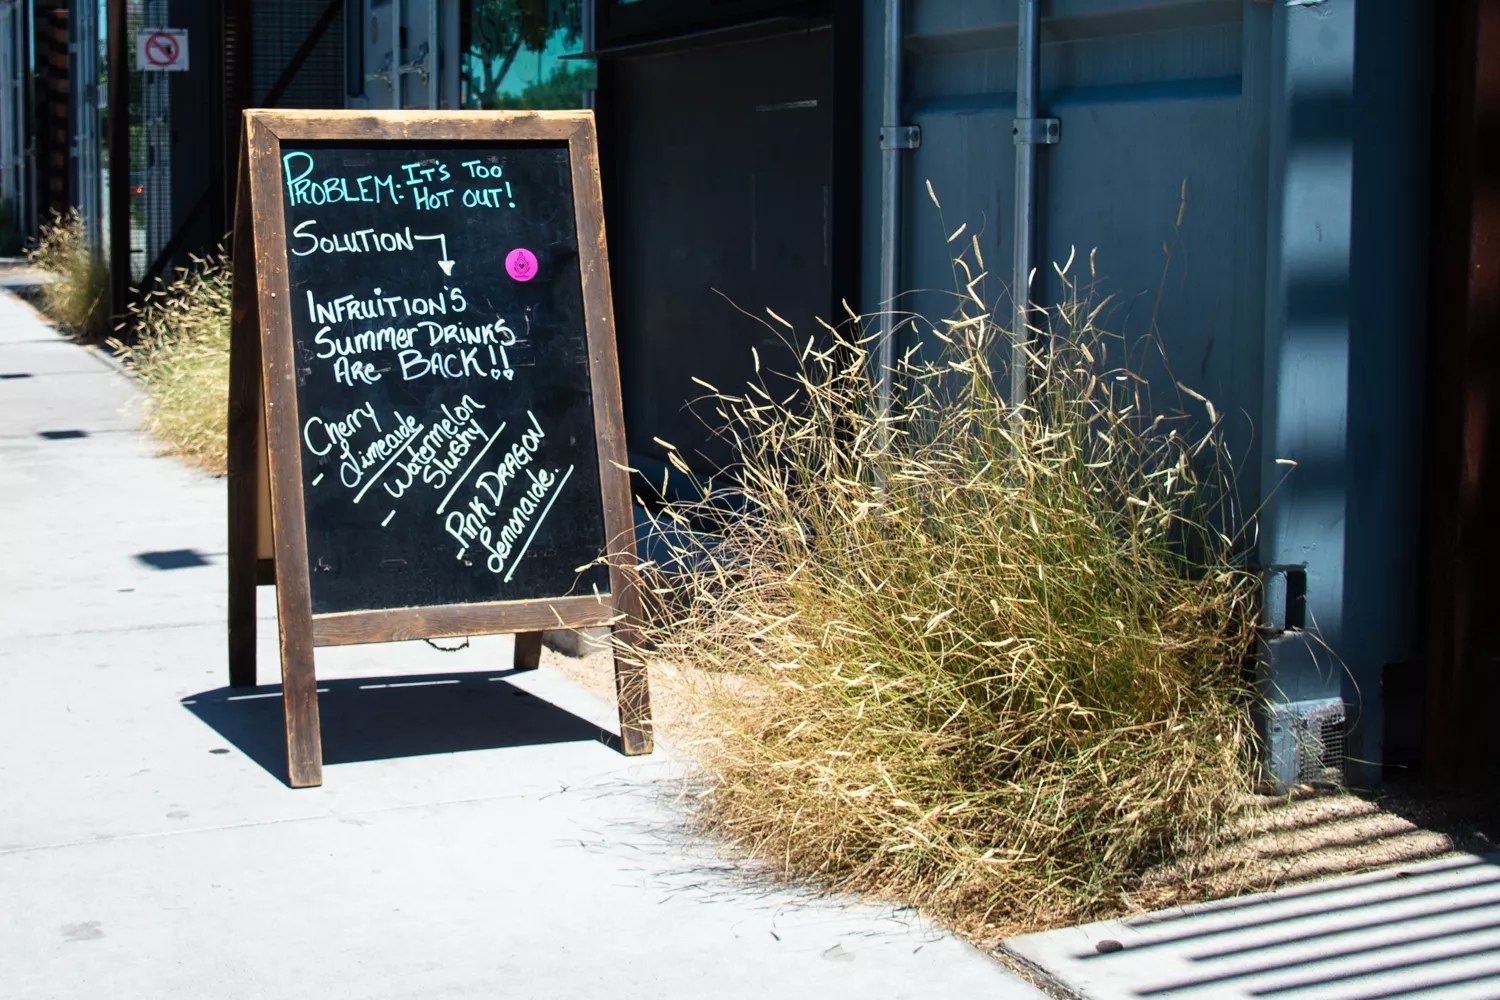 PROBLEM: IT'S TOO
HOT OUT!
SOLUTION
INFRUiTION'S
Summer DRINKS
ARe BACK!!
- Cherry
Limeaide
- Watermelon
Slushy
- Pink DRAGON
Lemonaide.